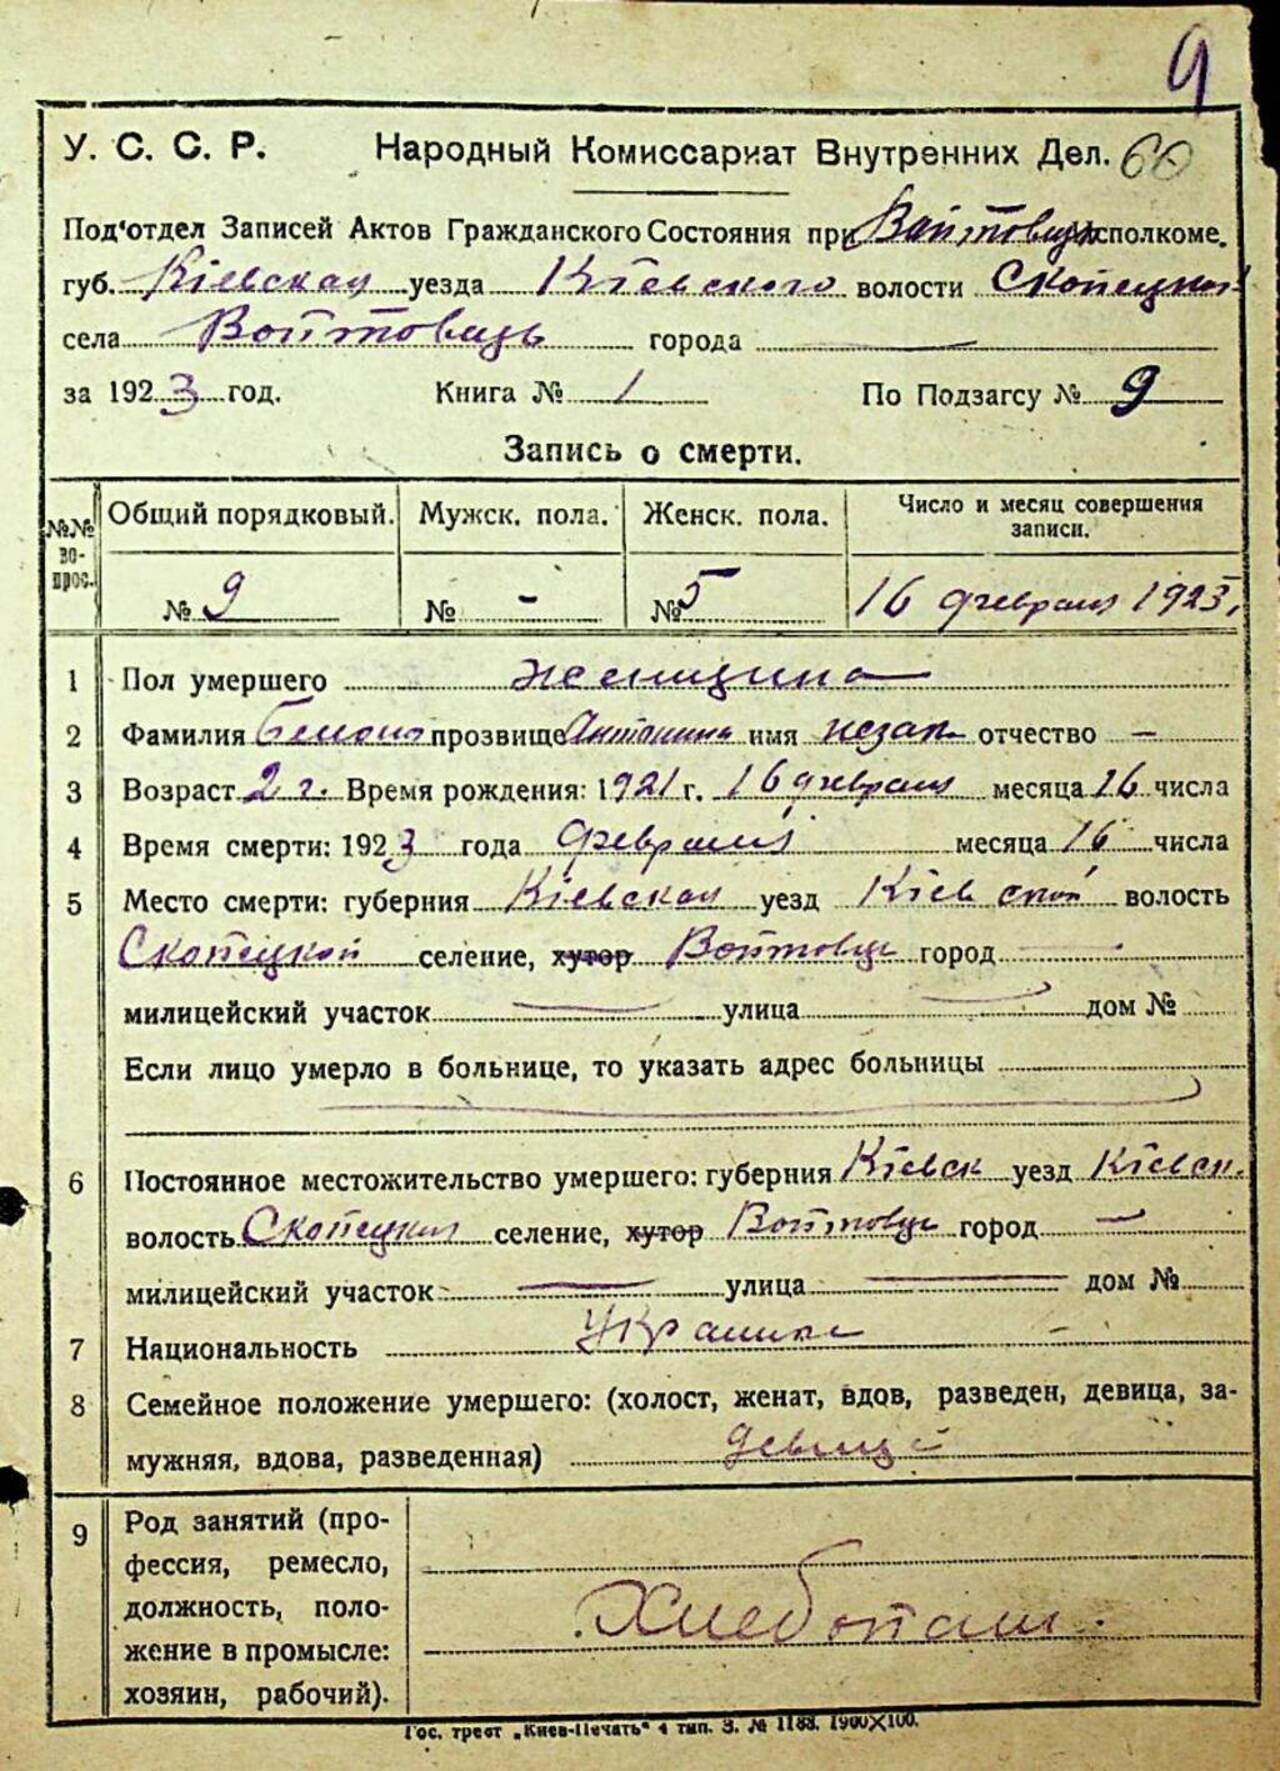 9
У. С. С. Р. Народный Комиссариат Внутренних Дел. 60
Под‘отдел Записей Актов Гражданского Состояния при Войтовец. Исполкоме.
губ. Кіевская уезда Кіевского волости Скопецкой
села Войтовцы города —
за 1923 год. Книга № 1 По Подзагсу № 9
Запись о смерти.
№№ во-прос. Общий порядковый. Мужск. пола. Женск. пола. Число и месяц совершения записи.
№ 9 № - № 5 16 февраля 1923.
1 Пол умершего женщина
2 Фамилия прозвище Антонина имя отчество —
3 Возраст 2 г. Время рождения: 1921 г. 16 февраля месяца 16 числа
4 Время смерти: 1923 года февраля месяца 16 числа
5 Место смерти: губерния Кіевская уезд Кіевской волость
Скопецкой селение, хутор Войтовце город —
милицейский участок — улица — дом №
Если лицо умерло в больнице, то указать адрес больницы
6 Постоянное местожительство умершего: губерния Кіевск уезд Кіевск.
волость Скопецкая селение, хутор Войтовце город —
милицейский участок — улица — дом №
7 Национальность —
8 Семейное положение умершего: (холост, женат, вдов, разведен, девица, за-
мужняя, вдова, разведенная) девица
9 Род занятий (про-
фессия, ремесло,
должность, поло- Хлебопаш.
жение в промысле:
хозяин, рабочий).
Гос. трест „Киев-Печать“ 4 тип. З. № 1188. 1900×100.